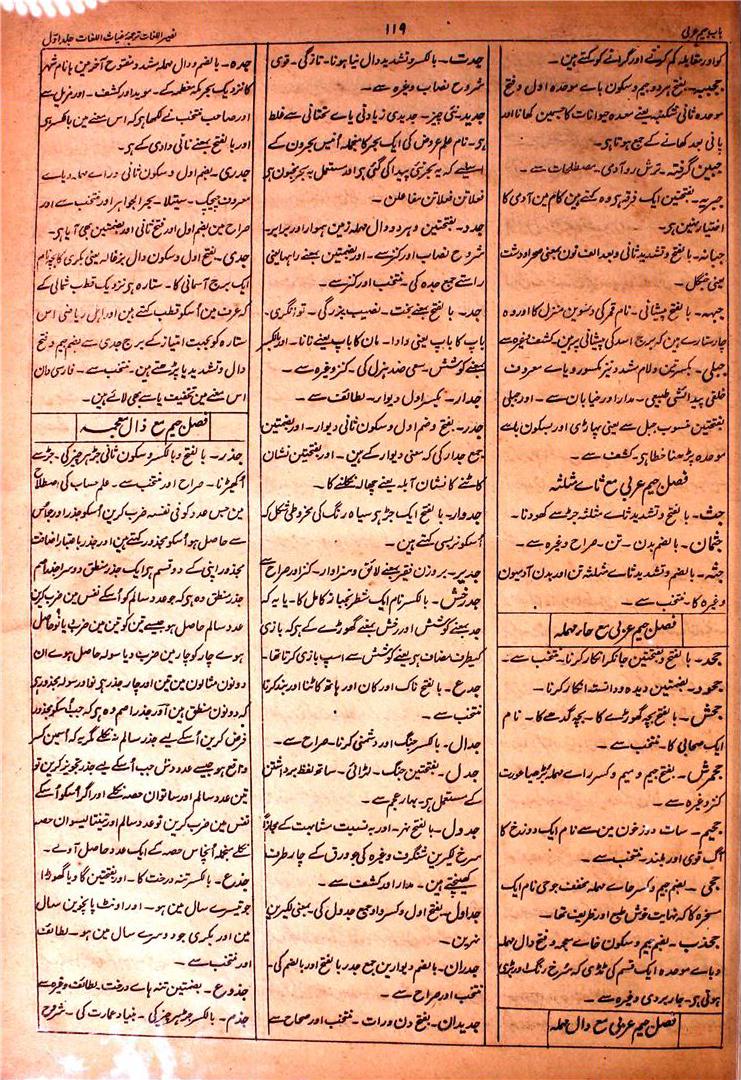 باب جیم عربی
۱۱۹
نصیر اللغات ترجمۂ غیاث اللغات جلد اول
کو اور مقابلہ کم کرنے اور گرانے کو کہتے ہین۔
جبجبہ۔ بفتح ہر دو جیم و سکون باے موحدہ اول و فتح
موحدہ ثانی شکنبہ یعنے معدہ حیوانات کا جسمین کھانا اور
پانی بعد کھانے کے جمع ہوتا ہی۔
جبین گرفتہ۔ ترش رو آدمی۔ مصطلحات سے۔
جبریہ۔ بفتحتین ایک فرقہ ہی وہ کہتے ہین کام مین آدمی کا
اختیار نہین ہی۔
جبانہ۔ بالفتح و تشدید ثانی و بعد الف نون بمعنی صحرا و دشت
یعنی جنگل۔
جبہہ۔ بالفتح پیشانی۔ نام قمر کی دسوین منزل کا اور وہ
چار ستارے ہین کہ برج اسد کی پیشانی پر ہین۔ کشف وغیرہ سے
جبلی۔ بکسرتین و لام مشدد و نیز مکسور و یاے معروف
خلقی پیدائشی طبیعی۔ مدار اور خیابان سے۔ اور جبلی
بفتحتین منسوب جبل سے یعنی پہاڑی اور بسکون باے
موحدہ پڑھنا خطا ہی۔ کشف سے۔
فصل جیم عربی مع ثاے مثلثہ
جث۔ بالفتح و تشدید ثاے مثلثہ جڑ سے کھودنا۔
جثمان۔ بالضم بدن۔ تن۔ صراح وغیرہ سے۔
جثہ۔ بالضم و تشدید ثاے مثلثہ تن اور بدن آدمیون
وغیرہ کا۔ منتخب سے۔
فصل جیم عربی مع حاء مہملہ
جحد۔ بالفتح و بفتحتین جانکر انکار کرنا۔ منتخب سے۔
جحود۔ بضمتین دیدہ و دانستہ انکار کرنا۔
جحش۔ بالفتح بچہ گھوڑے کا۔ بچہ گدھے کا۔ نام
ایک صحابی کا۔ منتخب سے۔
جحمرش۔ بفتح جیم و میم و کسر راے مہملہ بڑھیا عورت
کنز وغیرہ سے۔
جحیم۔ سات دوزخون مین سے نام ایک دوزخ کا
آگ قوی اور بلند۔ منتخب سے۔
جحی۔ بضم جیم و کسر حاے مہملہ مخفف جوحی نام ایک
مسخرہ کا کہ نہایت خوش طبع اور ظریف تھا۔
جحدب۔ بضم جیم و سکون خاے معجمہ و فتح دال مہملہ
و باے موحدہ ایک قسم کی ٹڈی کہ سرخ رنگ اور بڑی
ہوتی ہی۔ چار بردی وغیرہ سے۔
فصل جیم عربی مع دال مہملہ
جدت۔ بالکسر و تشدید دال نیا ہونا۔ تازگی۔ قوی
شروح نصاب وغیرہ سے۔
جدید۔ نئی چیز۔ جدیدی زیادتی یاے تحتانی سے غلط
ہی۔ نام علم عروض کی ایک بحر کا منجملہ انیس بحرون کے
اسلیے کہ یہ بحر نئی پیدا کی گئی ہی اور مستعمل یہ بحر مخبون ہی
فعلاتن فعلاتن مفاعلن۔
جدد۔ بفتحتین و ہر دو دال مہملہ زمین ہموار اور برابر۔
شروح نصاب اور کنز سے۔ اور بضمتین بمعنے راہہا یعنی
راستے جمع جدہ کی۔ منتخب اور کنز سے۔
جد۔ بالفتح بمعنے بخت۔ نصیب بزرگی۔ توانگری۔
باپ کا باپ یعنی دادا۔ مان کا باپ یعنے نانا۔ اور بالکسر
بمعنے کوشش۔ سعی ضد ہزل کی۔ کنز وغیرہ سے۔
جدار۔ بکسر اول دیوار۔ لطائف سے۔
جدر۔ بفتح و ضم اول و سکون ثانی دیوار۔ اور بضمتین
جمع جدار کی کہ معنی دیوار کے ہین۔ اور بفتحتین نشان
کاٹنے کا نشان آبلہ یعنے چھالہ نکلنے کا۔
جدوار۔ بالفتح ایک جڑ ہی سیاہ رنگ کی مخروطی شکل کہ
اسکو نربسی کہتے ہین۔
جدیر۔ بروزن فقیر بمعنے لائق و سزاوار۔ کنز اور صراح سے
جدرخش۔ بالکسر نام ایک شطرنجباز کامل کا۔ یا یہ کہ
جد بمعنے کوشش اور رخش بمعنے گھوڑے کے ہی کہ بازی
کیطرف مضاف ہی یعنے کوشش سے اسپ بازی کرتا تھا۔
جدع۔ بالفتح ناک اور کان اور ہاتھ کاٹنا اور بند کرنا
منتخب سے۔
جدال۔ بالکسر جنگ اور دشمنی کرنا۔ صراح سے۔
جدل۔ بفتحتین جنگ۔ لڑائی۔ ساتھ لفظ برداشتن
کے مستعمل ہی۔ بہار عجم سے۔
جدول۔ بالفتح نہر۔ اور بہ نسبت مشابہت کے مجازاً
سرخ لکیرین شنگرف وغیرہ کی جو ورق کے چار طرف
کھینچتے ہین۔ مدار اور کشف سے۔
جداول۔ بفتح اول و کسر واو جمع جدول کی بمعنی لکیرین
نہرین۔
جدران۔ بالضم دیوارین جمع جدر بالفتح اور بالضم کی۔
منتخب اور صراح سے۔
جدیدان۔ بفتح دن و رات۔ منتخب اور صحاح سے
جدہ۔ بالضم و دال مہملہ مشدد مفتوح آخر مین ہا نام شہر
کا نزدیک بحر مکہ معظمہ کے۔ موید اور کشف۔ اور مزیل سے
اور صاحب منتخب نے لکھا ہی کہ اس معنے مین بالکسر ہی
اور بالفتح بمعنے نانی دادی کے ہی۔
جدری۔ بضم اول و سکون ثانی و راے مہملہ و یاے
معروف چیچک۔ سیتلا۔ بحر الجواہر اور منتخب سے اور
صراح مین بضم اول اور فتح ثانی اور بفتحتین بھی آیا ہی۔
جدی۔ بفتح اول و سکون دال بزغالہ یعنی بکری کا بچہ نام
ایک برج آسمانی کا۔ ستارہ ہی نزدیک قطب شمالی کے
کہ عرف مین اسکو قطب کہتے ہین اور اہل ریاضی اس
ستارہ کو بجہت امتیاز کے برج جدی سے بضم جیم و فتح
دال و تشدید یا پڑھتے ہین۔ منتخب سے۔ فارسی دان
اس معنے مین تخفیف یا سے بھی لائے ہین۔
فصل جیم مع ذال معجمہ
جذر۔ بالفتح و بالکسر و سکون ثانی جڑ ہر چیز کی۔ جڑ سے
اکھیڑنا۔ صراح اور منتخب سے۔ علم حساب کی اصطلاح
مین جس عدد کو فی نفسہ ضرب کرین اسکو جذر اور جو اس
سے حاصل ہو اسکو مجذور کہتے ہین اور جذر باعتبار اضافت
مجذور اپنی کے دو قسم ہی ایک جذر منطق دوسرا جذر اصم
جذر منطق وہ ہی کہ جو عدد سالم کو اسکے نفس مین ضرب کرین
عدد سالم حاصل ہو جیسے تین کو تین مین ضرب دیا نو حاصل
ہوے چار کو چار مین ضرب دیا سولہ حاصل ہوے ان
دونون مثالون مین تین اور چار جذر ہی نو اور سولہ مجذور ہی
کہ دونون منطق ہین اور جذر اصم وہ ہی کہ جب اسکو مجذور
فرض کرین اسکے لیے جذر سالم نہ نکلے مگر یہ کہ اسمین کسر
واقع ہو جیسے عدد دس جب اسکے لیے جذر تجویز کرین تو
تین عدد سالم اور ساتوان حصہ نکلے اور اگر اسکو اسکے
نفس مین ضرب کرین تو عدد سالم اور تینتالیسوان حصہ
نکلے منجملہ انچاس حصہ کے ایک عدد حاصل آوے۔
جذع۔ بالکسر تنہ درخت کا۔ اور بفتحتین گاو یا گھوڑا
جو تیسرے سال مین ہو۔ اور اونٹ پانچوین سال
مین اور بکری جو دوسرے سال مین ہو۔ لطائف
اور منتخب سے۔
جذوع۔ بضمتین تنہ ہاے درخت۔ لطائف وغیرہ سے
جذم۔ بالکسر جڑ ہر چیز کی۔ بنیاد عمارت کی۔ شروح